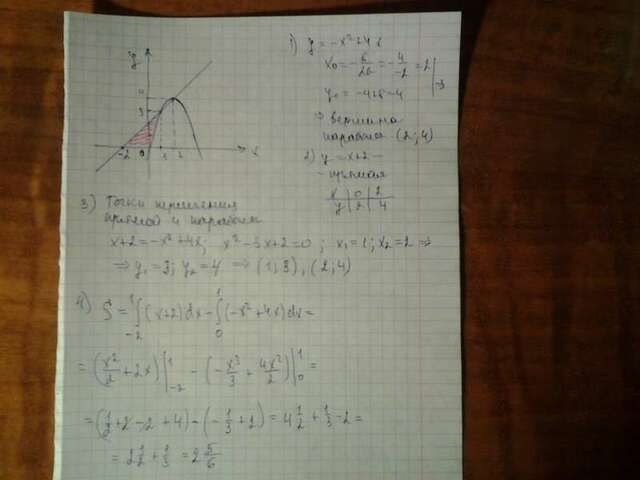 y
4
3
-2 0 1 2 x
1) y = -x² + 4x
x₀ = -b/2a = -4/-2 = 2
y₀ = -4+8 = 4
⇒ вершина
параболы (2; 4)
2) y = x+2 –
- прямая
x | 0 | 2
y | 2 | 4
3) Точки пересечения
прямой и параболы
x+2 = -x²+4x; x²-3x+2=0; x₁=1; x₂=2 ⇒
⇒ y₁=3; y₂=4 ⇒ (1; 3), (2; 4)
4) S = ∫₋₂¹ (x+2)dx - ∫₀¹ (-x²+4x)dx =
= (x²/2 + 2x)|₋₂¹ - (-x³/3 + 4x²/2)|₀¹ =
= (1/2 + 2 - 2 + 4) - (-1/3 + 2) = 4 1/2 + 1/3 - 2 =
= 2 1/2 + 1/3 = 2 5/6